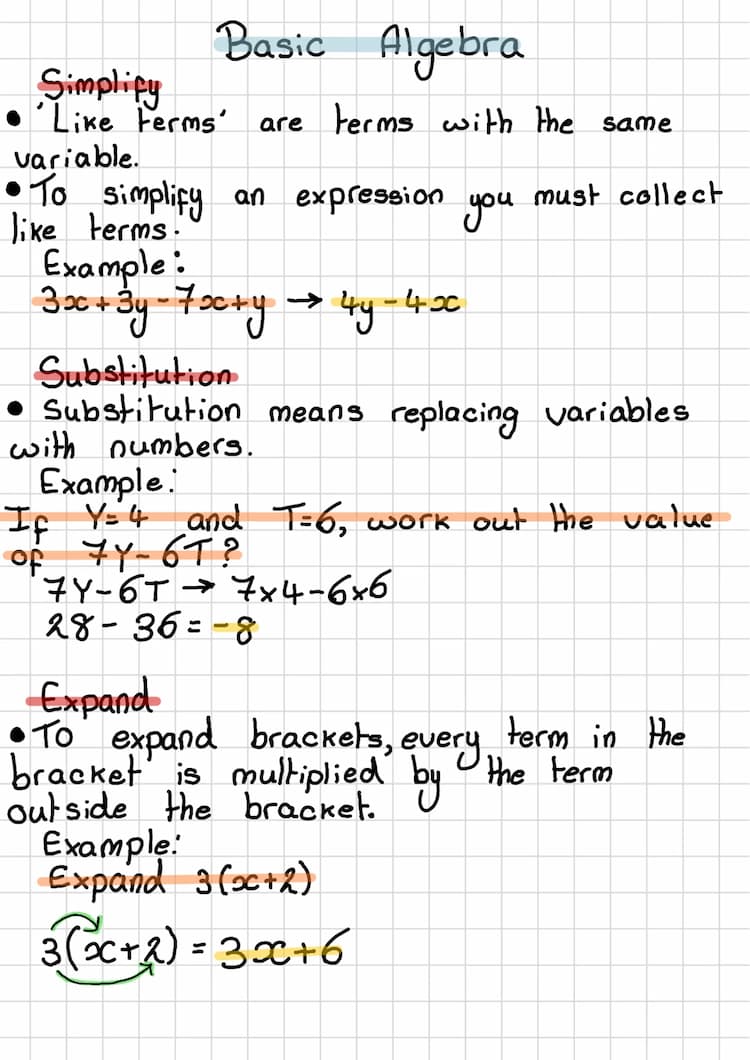 Basic Algebra
Simplify
• 'Like terms' are terms with the same
variable.
• To simplify an expression you must collect
like terms.
Example:
3x+3y-7x+y → 4y-4x
Substitution
• Substitution means replacing variables
with numbers.
Example:
If Y=4 and T=6, work out the value
of 7Y-6T?
7Y-6T → 7x4-6x6
28-36=-8
Expand
• To expand brackets, every term in the
bracket is multiplied by the term
outside the bracket.
Example:
Expand 3(x+2)
3(x+2) = 3x+6